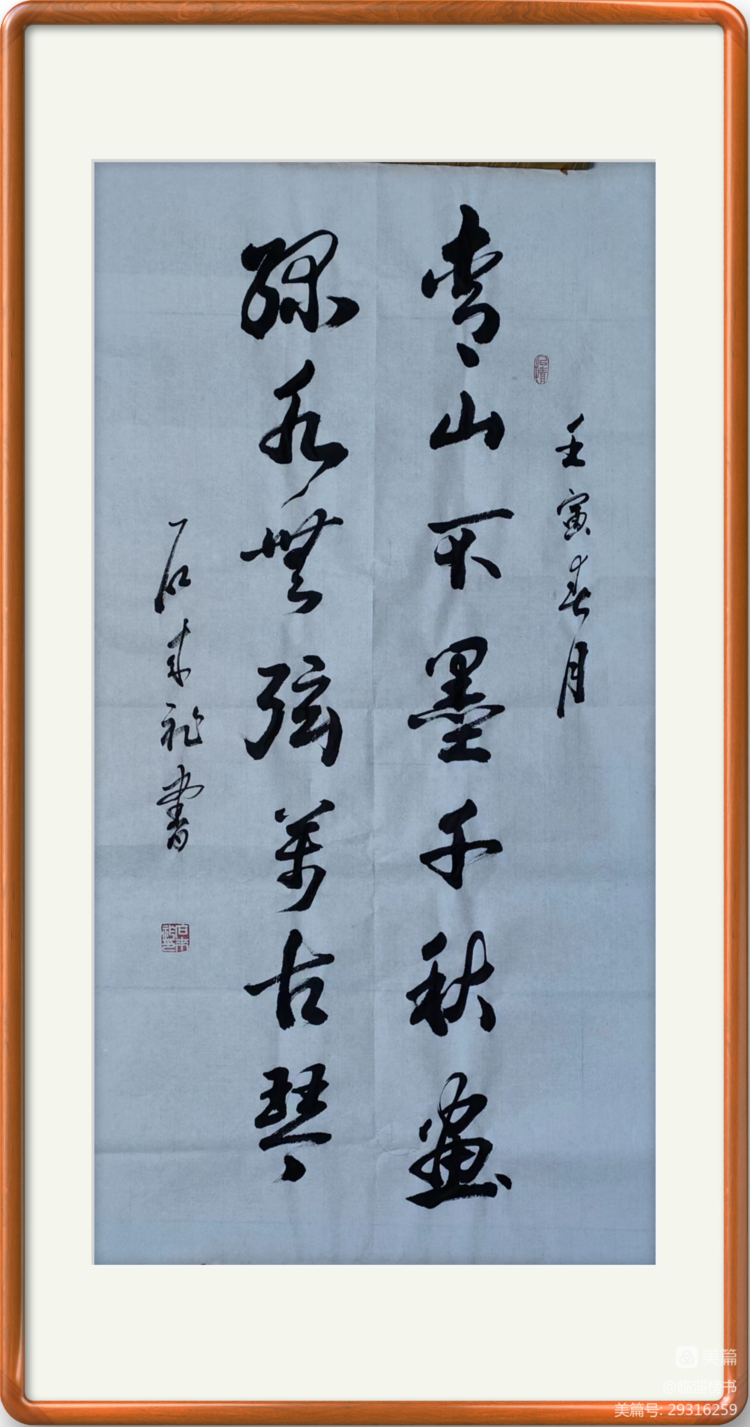 壬寅春月
青山不墨千秋画
绿水無弦萬古琴
石来祉書
美篇
美篇号: 29316259